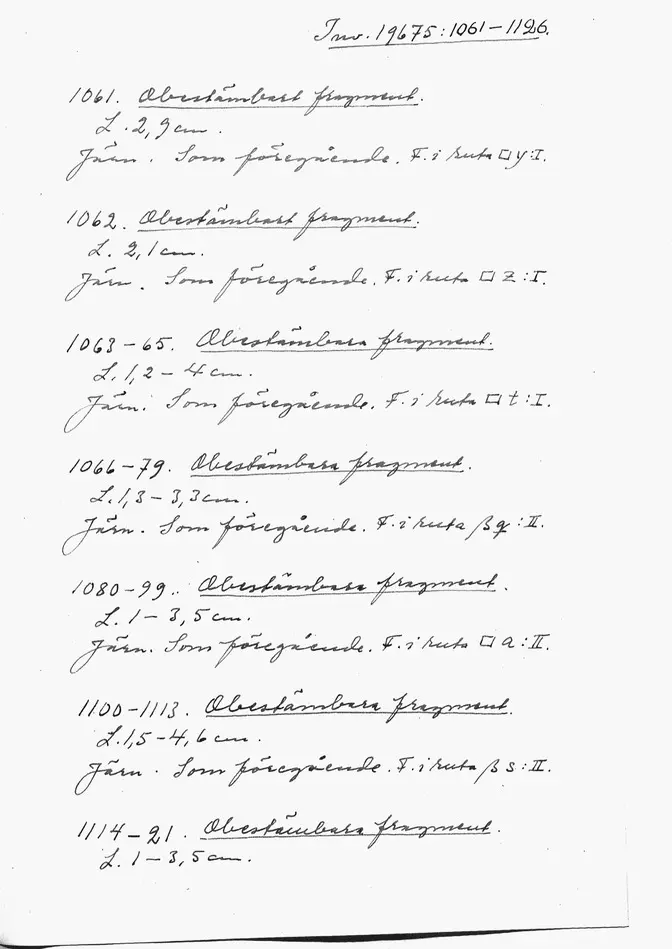 Inv. 19675:1061–1126.
1061. Obestämbart fragment.
L. 2,9 cm.
Järn. Som föregående. F. i ruta □ y:I.
1062. Obestämbart fragment.
L. 2,1 cm.
Järn. Som föregående. F. i ruta □ z:I.
1063–65. Obestämbara fragment.
L. 1,2 – 4 cm.
Järn. Som föregående. F. i ruta □ t:I.
1066–79. Obestämbara fragment.
L. 1,3 – 3,3 cm.
Järn. Som föregående. F. i ruta ß q:II.
1080–99. Obestämbara fragment.
L. 1 – 3,5 cm.
Järn. Som föregående. F. i ruta □ a:II.
1100–1113. Obestämbara fragment.
L. 1,5–4,6 cm.
Järn. Som föregående. F. i ruta ß s:II.
1114–21. Obestämbara fragment.
L. 1–3,5 cm.